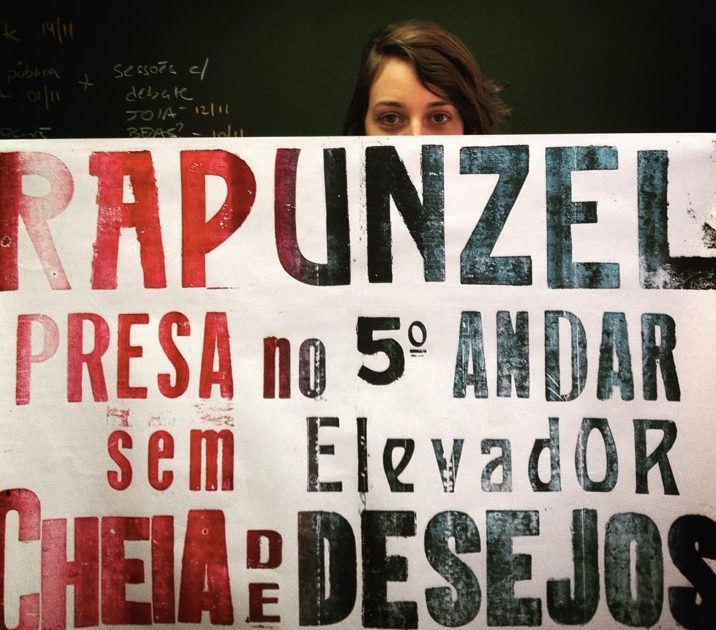 te 14/11
pública + sessões c/
01/11 debate
JOIA - 12/11
- 10/11
RAPUNZEL
PRESA no 5º ANDAR
sem ElevadOR
CHEIA DE DESEJOS